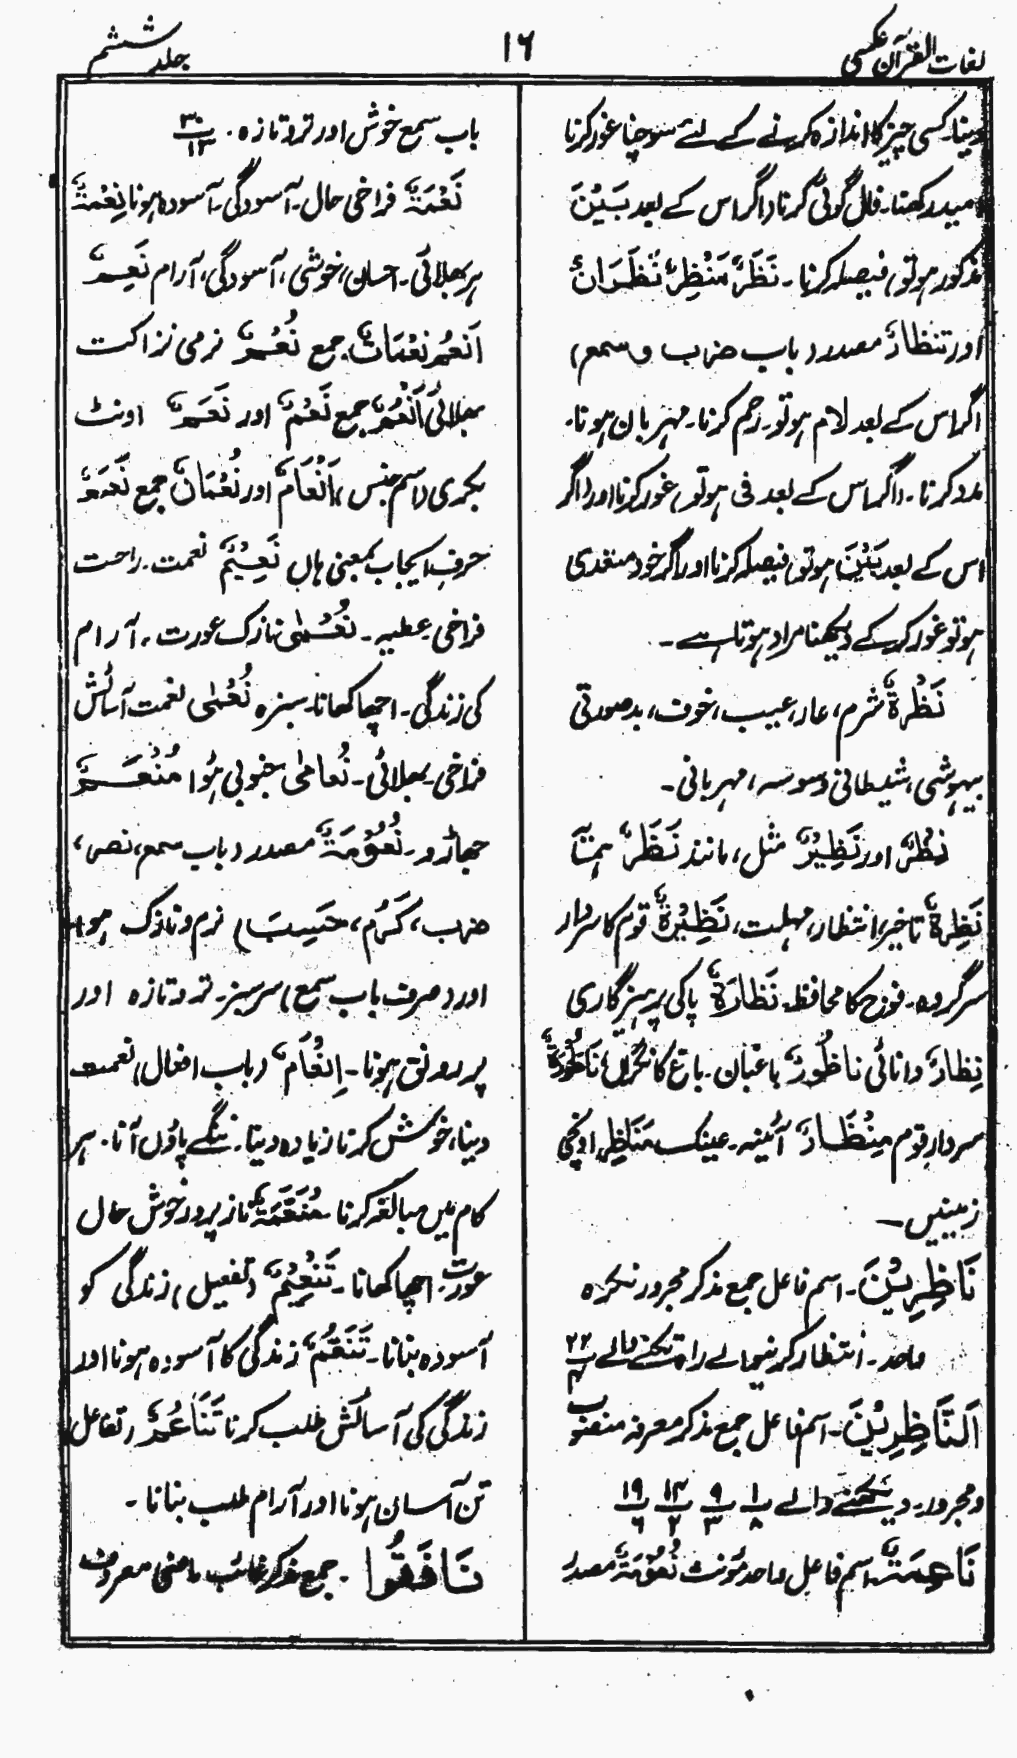 لغات القرآن عکسی
۱۶
جلد ششم
دینا۔ کسی چیز کا اندازہ کرنے کے لئے سوچنا غور کرنا
امید رکھنا۔ فال گوئی کرنا (اگر اس کے بعد بَیْنَ
مذکور ہو تو) فیصلہ کرنا۔ نَظَرٌ مَنْظِرٌ نَظَرَانٌ
اور تَنْظَارٌ مصدر (باب ضرب و سمع)
اگر اس کے بعد لام ہو تو۔ رحم کرنا۔ مہربان ہونا۔
مدد کرنا۔ (اگر اس کے بعد فی ہو تو) غور کرنا اور (اگر
اس کے بعد بَیْنَ ہو تو) فیصلہ کرنا اور اگر خود متعدی
ہو تو غور کر کے دیکھنا مراد ہوتا ہے۔
نَظْرَةٌ شرم، عار، عیب، خوف، بدصورتی
بیہوشی، شیطانی وسوسہ، مہربانی۔
نِظْرٌ اور نَظِیْرٌ مثل، مانند نَظَرٌ ہمتا
نَظِرَةٌ تاخیر، انتظار، مہلت، نَظِیْرَةٌ قوم کا سردار
سرگروہ۔ فوج کا محافظ۔ نَظَارَةٌ پاکی پرہیزگاری
نِظَارٌ دانائی نَاظُورٌ باغبان۔ باغ کا نگراں نَاظُوْرَةٌ
سردار قوم مِنْظَارٌ آئینہ۔ عینک مَنَاظِر اونچی
زمینیں۔
نَاظِرِیْنَ۔ اسم فاعل جمع مذکر مجرور نکرہ
واحد۔ انتظار کرنیوالے راہ تکنے والے ۲۲/۴
اَلنَّاظِرِیْنَ۔ اسم فاعل جمع مذکر معرفہ منصوب
و مجرور۔ دیکھنے والے ۱/۸ ۹/۳ ۱۴/۲ ۱۹/۶
نَاعِمَةٌ اسم فاعل واحد مؤنث نُعُوْمَةٌ مصدر
باب سمع خوش اور تروتازہ۔ ۳۰/۱۳
نَعْمَةٌ فراخی حال۔ آسودگی۔ آسودہ ہونا نِعْمَةٌ
ہر بھلائی۔ احسان، خوشی، آسودگی، آرام نَعِمٌ
اَنْعُمٌ نِعْمَاتٌ جمع نُعْمٌ نرمی نزاکت
بھلائی اَنْعُمٌ جمع نَعْمٌ اور نَعَمٌ اونٹ
بکری (اسم جنس) اَنْعَامٌ اور نُعْمَانٌ جمع نَعَمْ
حرف ایجاب بمعنی ہاں نَعِیْمٌ نعمت۔ راحت
فراخی۔ عطیہ۔ نُعْمٰی نازک عورت۔ آرام
کی زندگی۔ اچھا کھانا۔ سبزہ نُعْمٰی نعمت آسائش
فراخی۔ بھلائی۔ نُعامٰی جنوبی ہوا مُنْعَمٌ
جھاڑو۔ نُعُوْمَةٌ مصدر (باب سمع، نصر،
ضرب، کَرُم، حَسِبَ) نرم و نازک ہوا
اور (صرف باب سمع) سرسبز۔ تروتازہ اور
پر رونق ہونا۔ اِنْعَامٌ (باب افعال) نعمت
دینا، خوش کرنا زیادہ دینا۔ ننگے پاؤں آنا۔ ہر
کام میں مبالغہ کرنا مُنَعَّمَةٌ ناز پرور خوش حال
عورت۔ اچھا کھانا۔ تَنْعِیْمٌ (تفعیل) زندگی کو
آسودہ بنانا۔ تَنَعُّمٌ زندگی کا آسودہ ہونا اور
زندگی کی آسائش طلب کرنا تَنَاعُمٌ (تفاعل)
تن آسان ہونا اور آرام طلب بنانا۔
نَافَقُوا۔ جمع مذکر غائب ماضی معروف